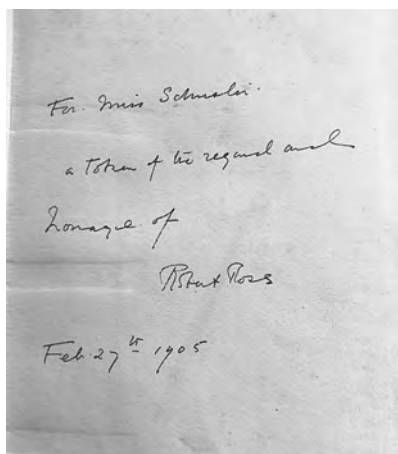 For. Miss Schuster.
a token of the regard and
homage of
Robert Ross
Feb. 27th 1905